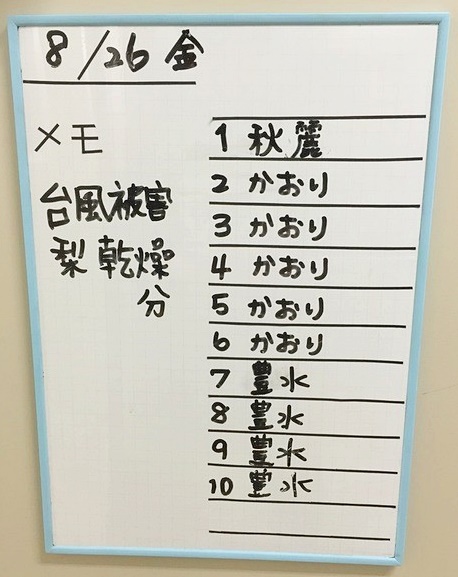 8/26 金
メモ
台風被害
梨 乾燥
分
1 秋麗
2 かおり
3 かおり
4 かおり
5 かおり
6 かおり
7 豊水
8 豊水
9 豊水
10 豊水